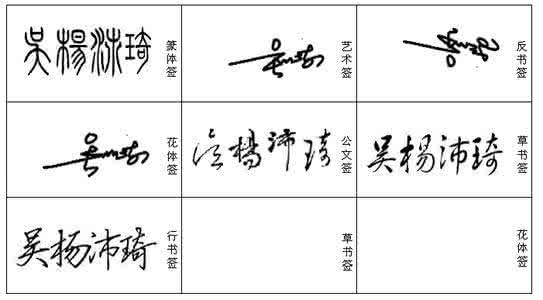 吴杨沛琦 篆体签
艺术签
反书签
花体签
吴杨沛琦 公文签
吴杨沛琦 草书签
吴杨沛琦 行书签
草书签
花体签